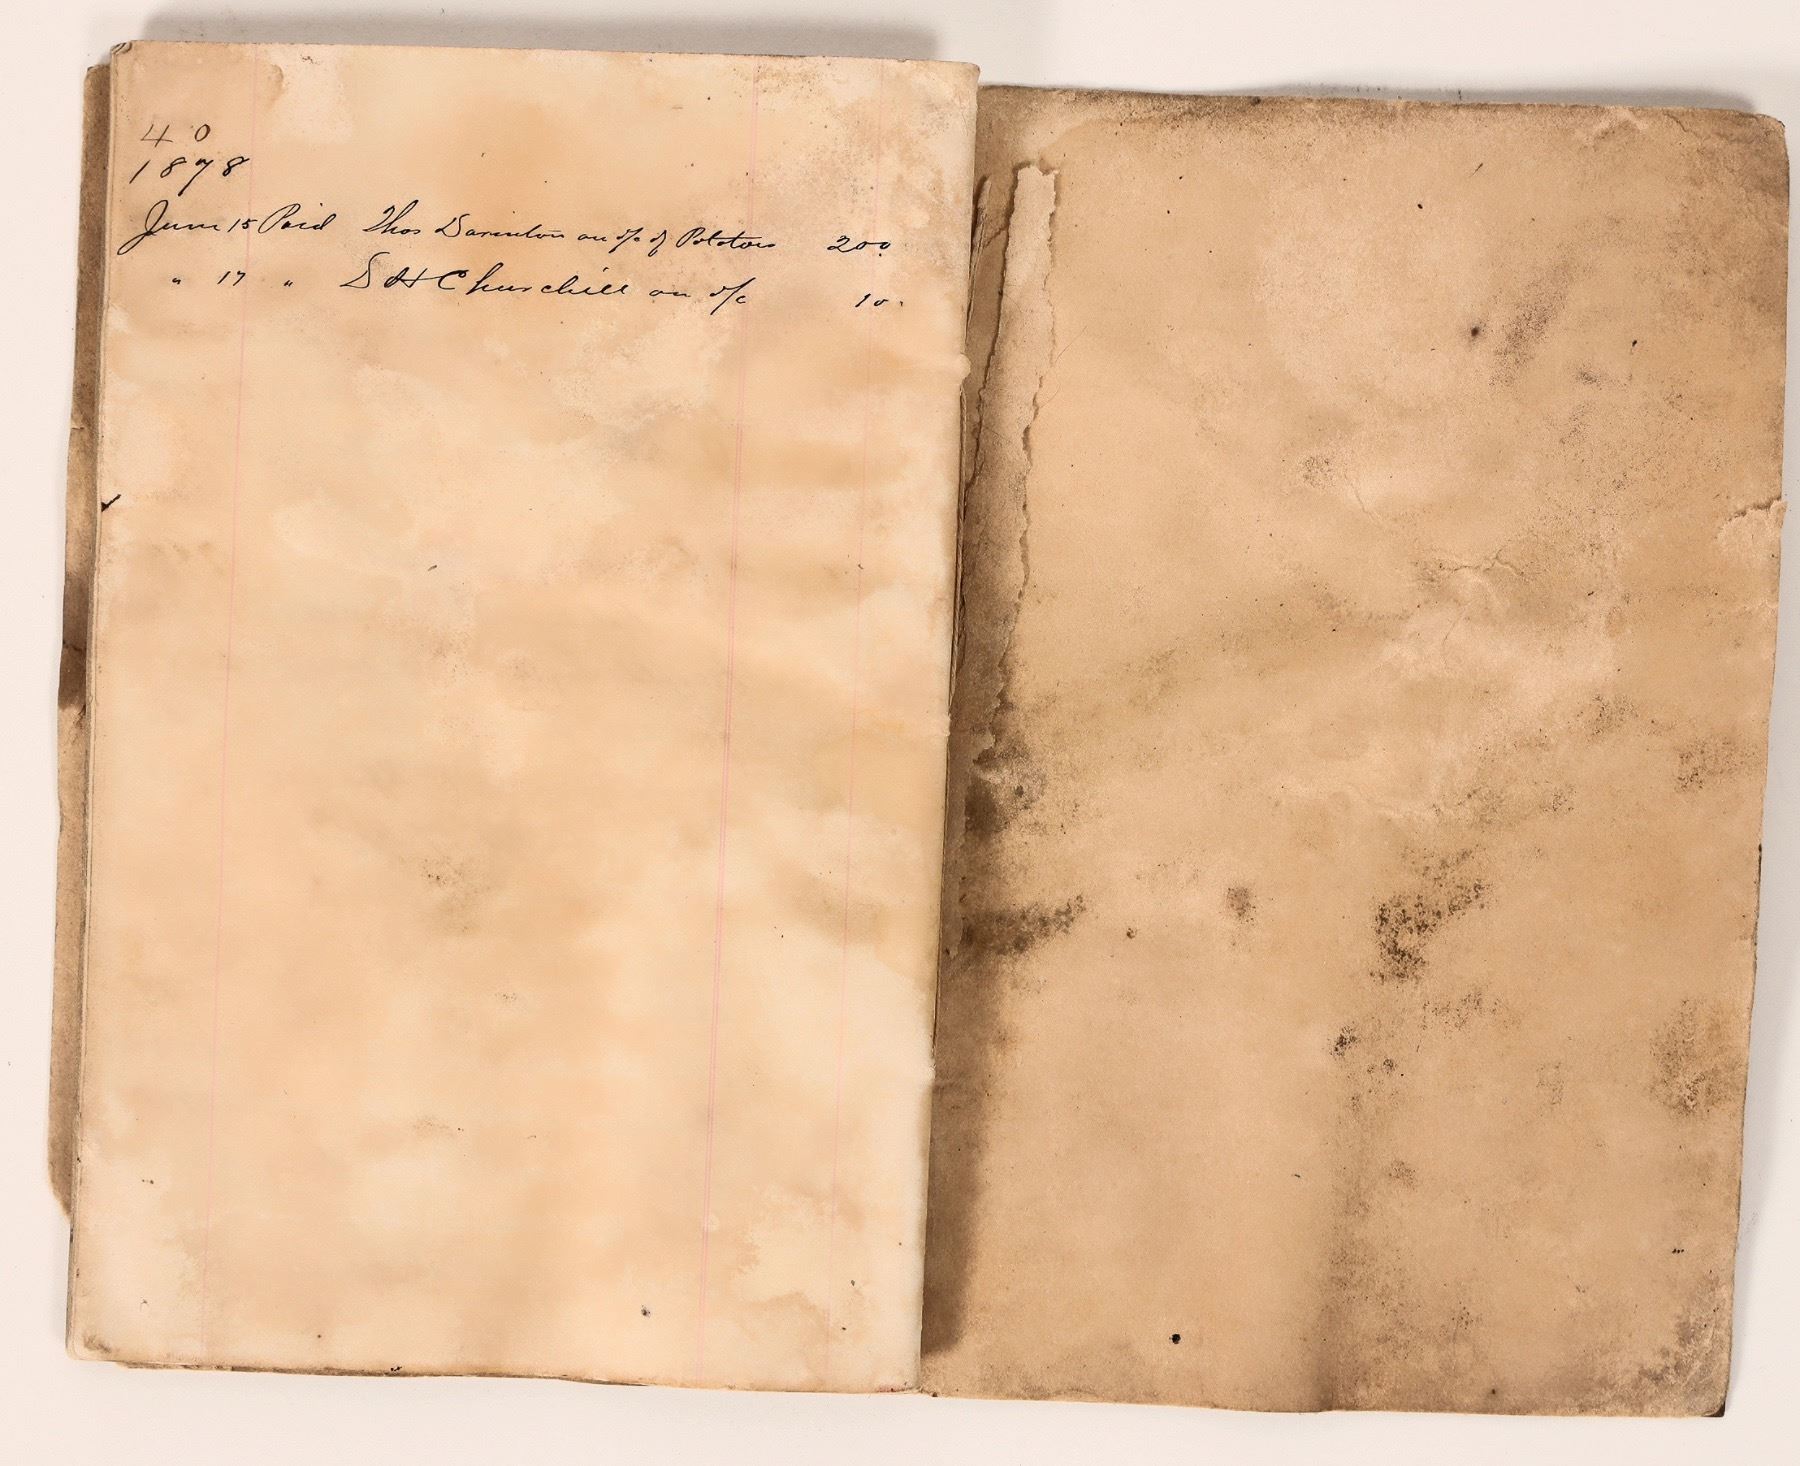 40
1878
June 15 Paid Thos on a/c of Potatoes 200.
" 17 " D H Churchill on a/c 10.